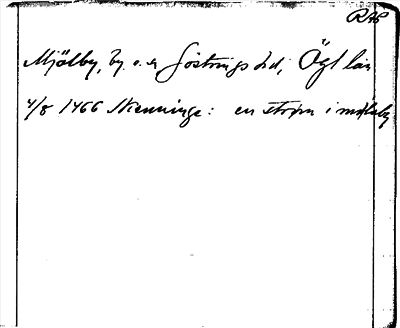 RAP
Mjölby, by o. sn Göstrings hd, Ögl län
4/8 1466 Skenninge: en ström i miølby